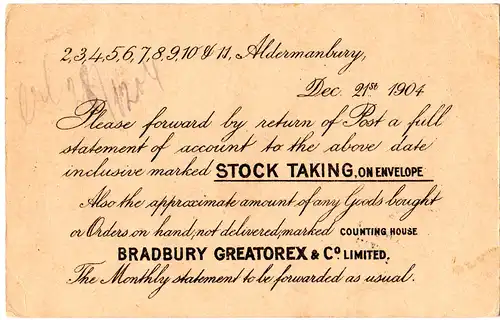 2,3,4,5,6,7,8,9,10 & 11, Aldermanbury,
Dec 21st 1904
Please forward by return of Post a full
statement of account to the above date
inclusive marked STOCK TAKING, ON ENVELOPE
Also the approximate amount of any Goods bought
or Orders on hand, not delivered, marked COUNTING HOUSE
BRADBURY GREATOREX & Co LIMITED.
The Monthly statement to be forwarded as usual.